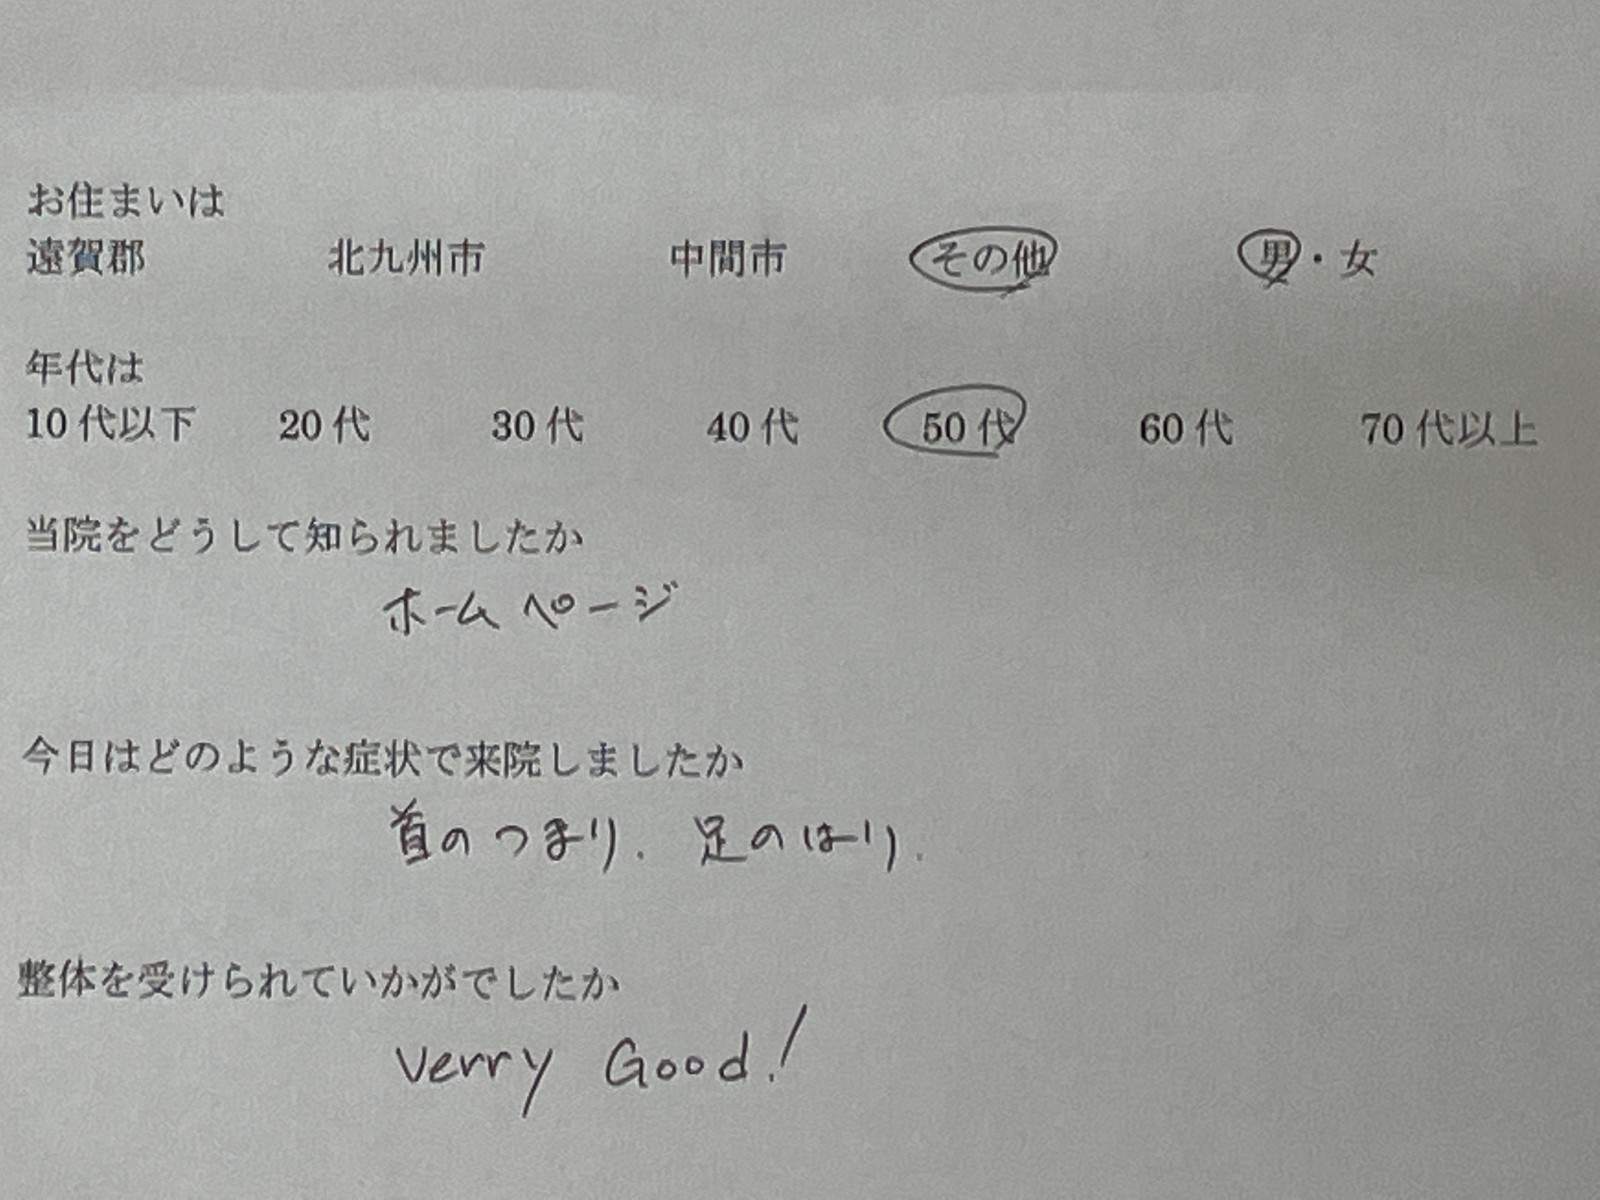 お住まいは
遠賀郡 北九州市 中間市 その他 男・女
年代は
10代以下 20代 30代 40代 50代 60代 70代以上
当院をどうして知られましたか
ホームページ
今日はどのような症状で来院しましたか
首のつまり. 足のはり.
整体を受けられていかがでしたか
Verry Good!